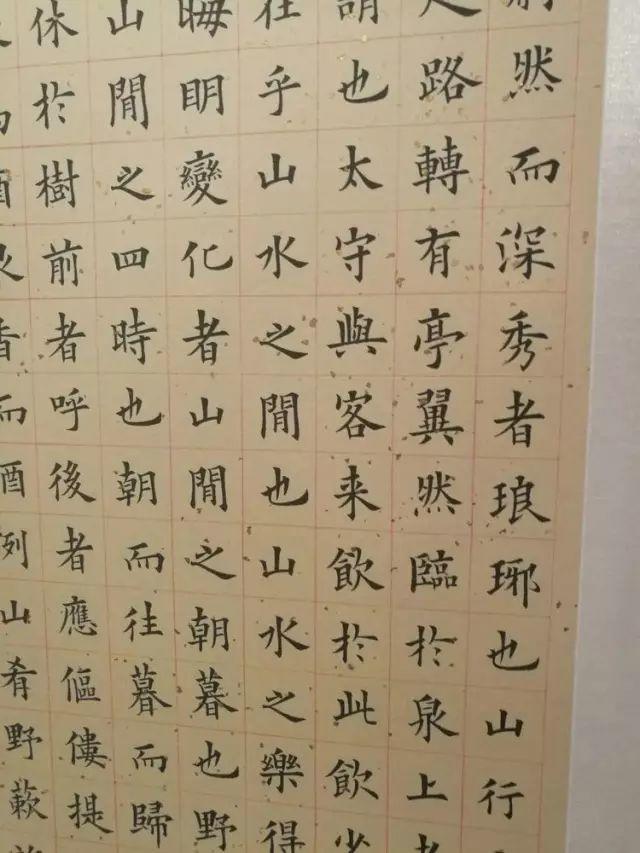 然而深秀者琅琊也山行
路轉有亭翼然臨於泉上者
謂也太守與客来飲於此飲少
在乎山水之閒也山水之樂得
晦眀變化者山閒之朝暮也野
山閒之四時也朝而往暮而歸
休於樹前者呼後者應傴僂提
香而酒洌山肴野蔌